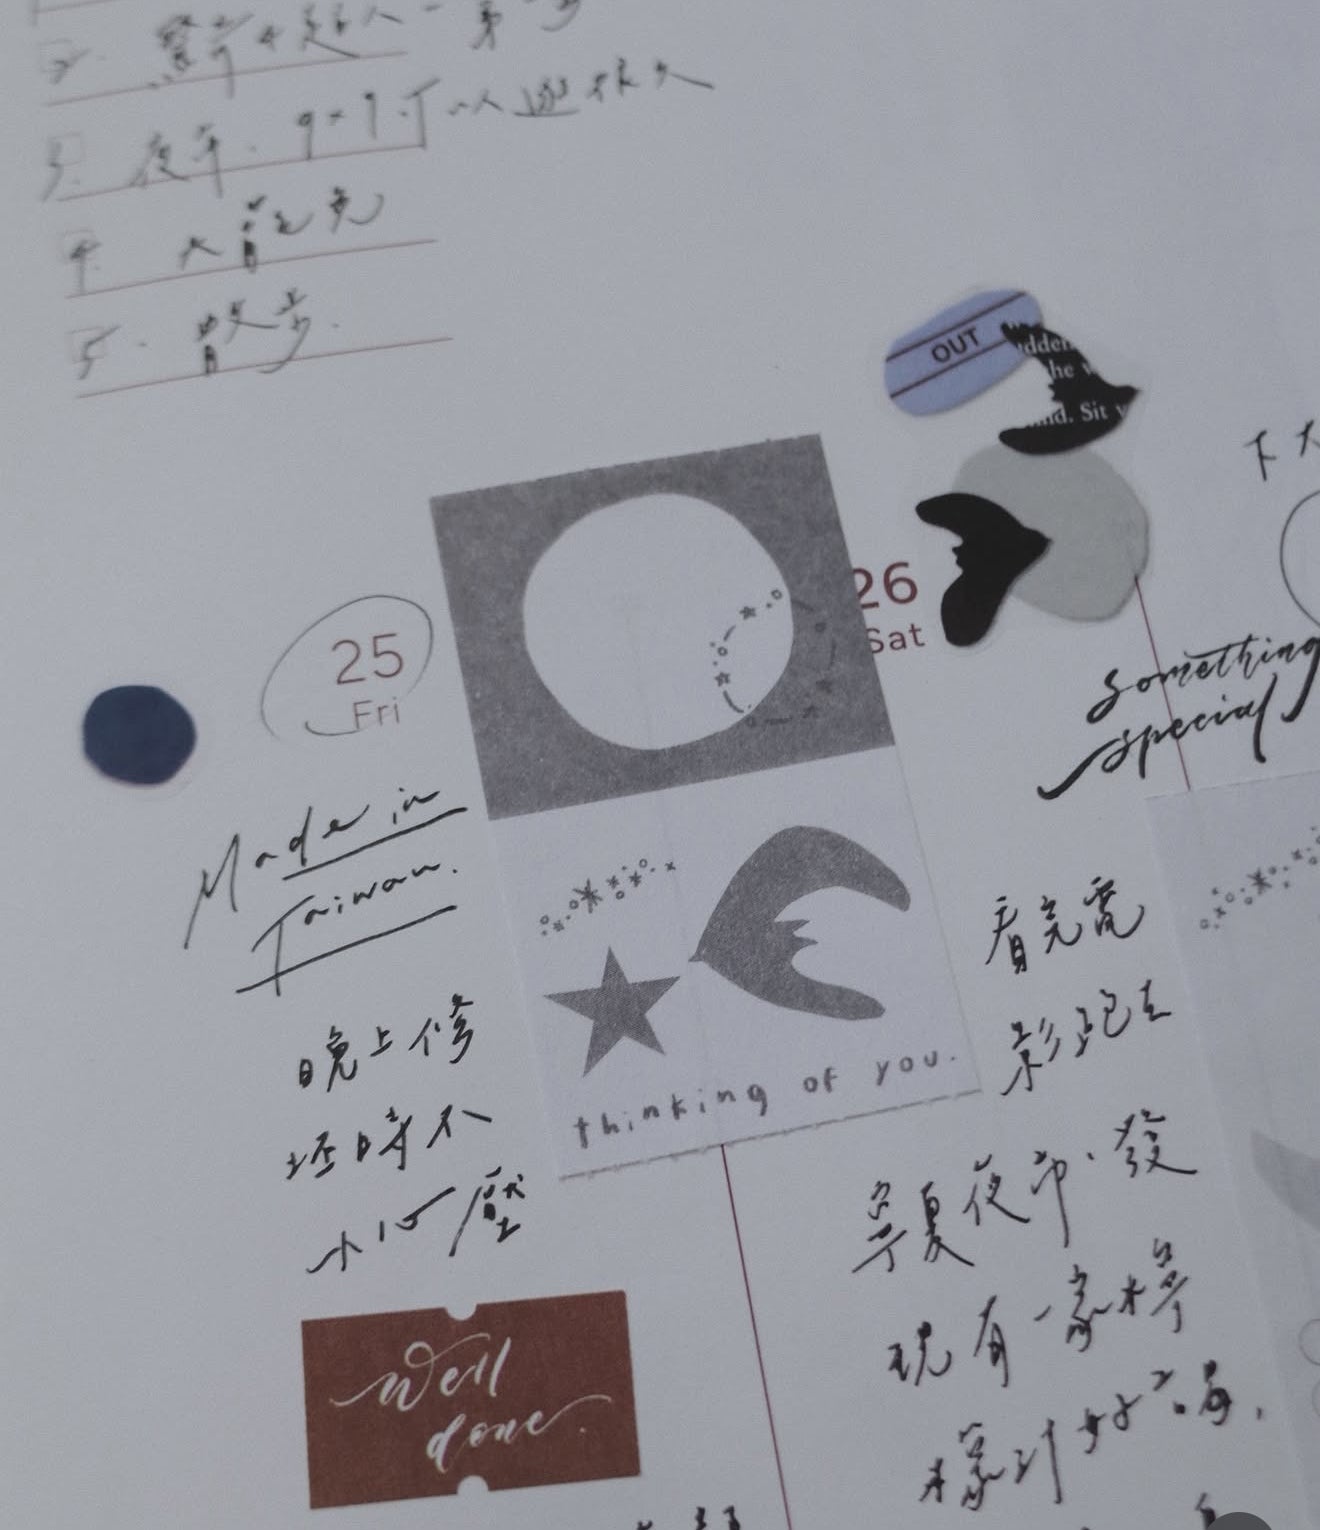 3. 夜市. 9x9可以逛很久
4.
5. 散步.
OUT
he
nd. Sit
下大
25
Fri
26
Sat
something
special
Made in
Taiwan.
thinking of you.
晚上修
坯時不
小心壓
看完電
影跑去
寧夏夜市. 發
現有一家檸
檬汁好好喝,
Well
done.